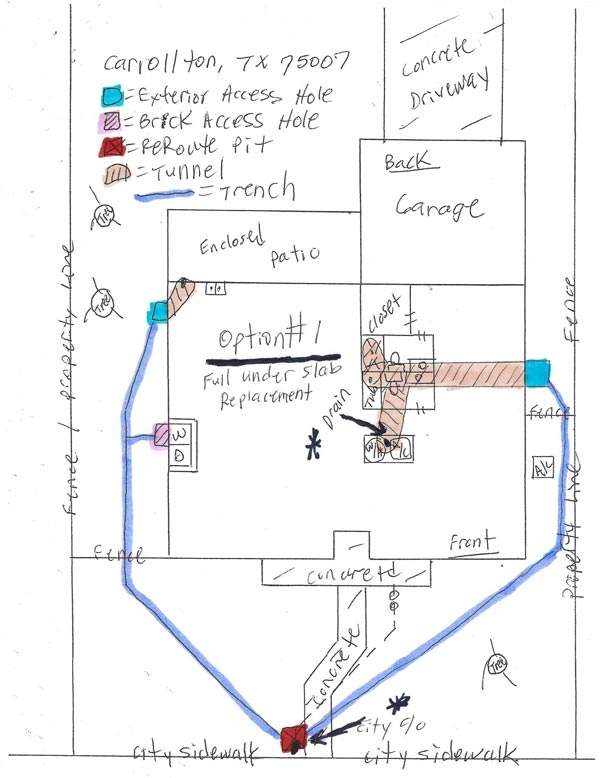 Carrollton, TX 75007
= Exterior Access Hole
= Brick Access Hole
= ReRoute Pit
= Tunnel
= Trench
Concrete
Driveway
Back
Garage
Enclosed
patio
Tree
Tree
Fence / property Line
Fence
Closet
Option #1
Full under slab
Replacement
Tub
Drain
W
D
W/H
Fence
A/C
property Line
Fence
Front
Concrete
Concrete
Tree
City c/o
City sidewalk
City sidewalk